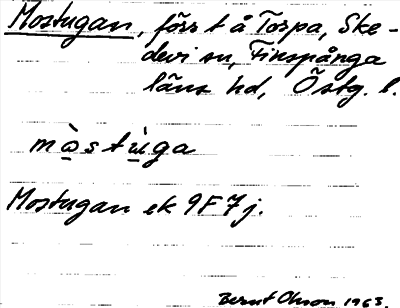 Mostugan, förr t å Torpa, Ske-
devi sn, Finspånga
läns hd, Östg. l.
mɔ̀stu̇̀ga
Mostugan ek 9F7j.
Bernt Olsson 1963.